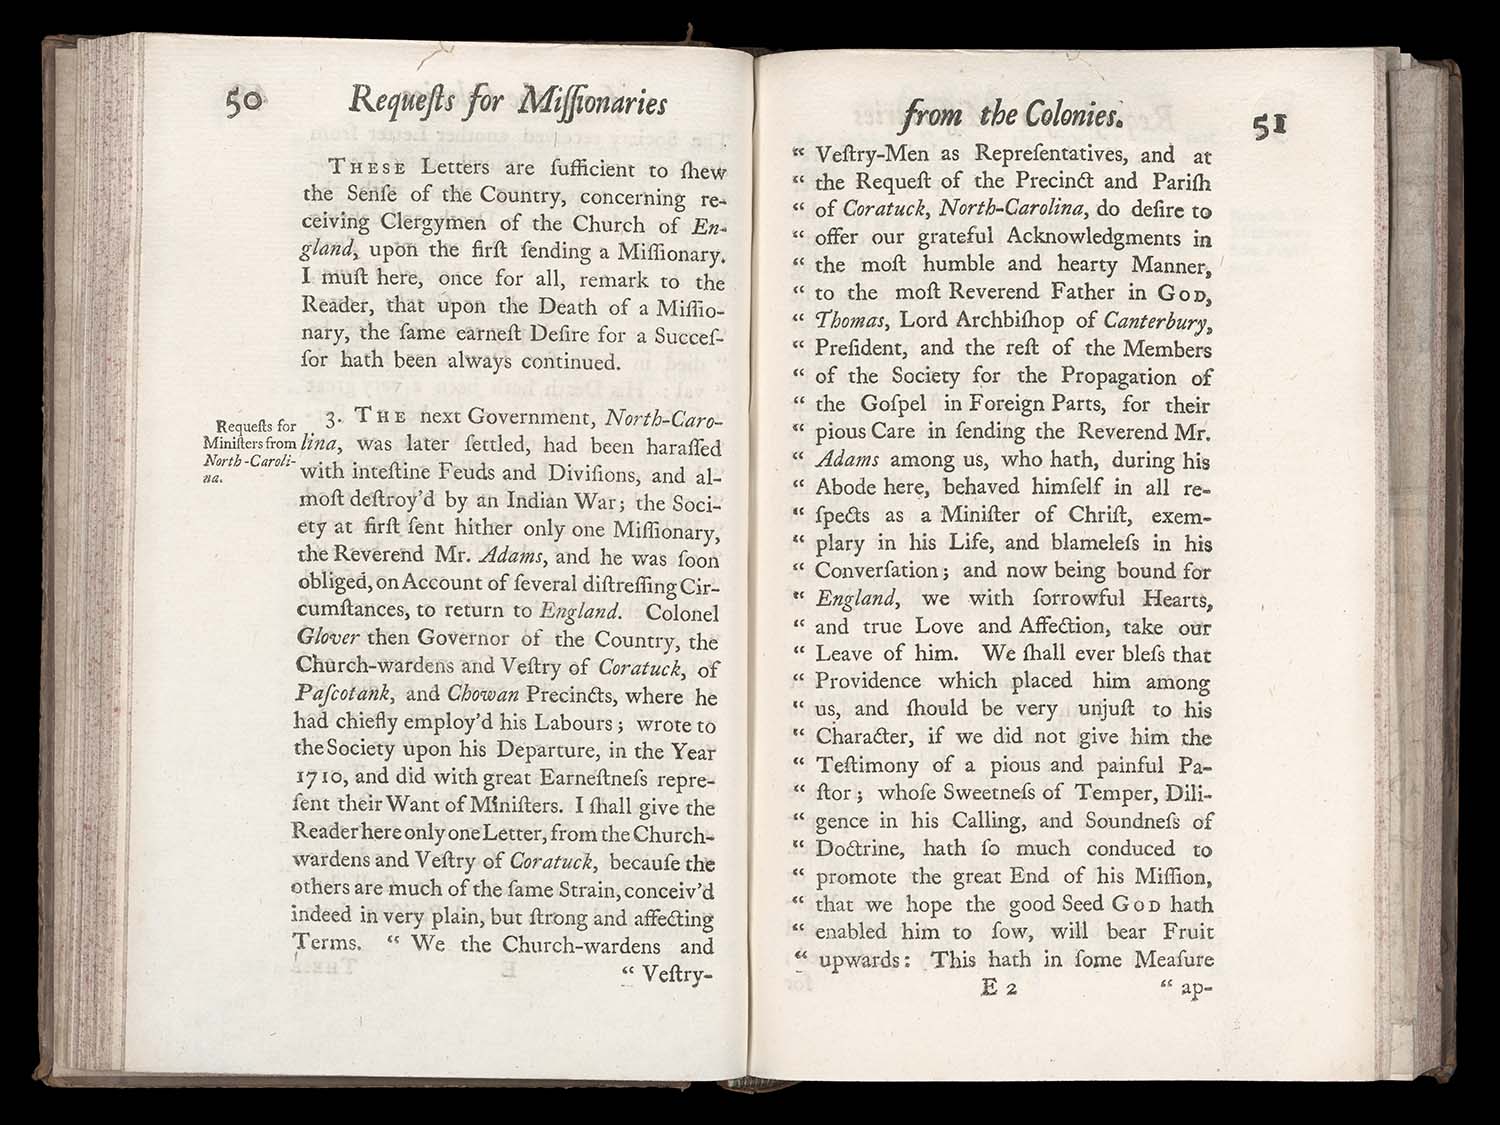 50 Requeſts for Miſſionaries
THESE Letters are ſufficient to ſhew
the Senſe of the Country, concerning re-
ceiving Clergymen of the Church of En-
gland, upon the firſt ſending a Miſſionary.
I muſt here, once for all, remark to the
Reader, that upon the Death of a Miſſio-
nary, the ſame earneſt Deſire for a Succeſ-
ſor hath been always continued.
Requeſts for
Miniſters from
North-Caroli-
na.
3. THE next Government, North-Caro-
lina, was later ſettled, had been haraſſed
with inteſtine Feuds and Diviſions, and al-
moſt deſtroy'd by an Indian War; the Soci-
ety at firſt ſent hither only one Miſſionary,
the Reverend Mr. Adams, and he was ſoon
obliged, on Account of ſeveral diſtreſſing Cir-
cumſtances, to return to England. Colonel
Glover then Governor of the Country, the
Church-wardens and Veſtry of Coratuck, of
Paſcotank, and Chowan Precincts, where he
had chiefly employ'd his Labours; wrote to
the Society upon his Departure, in the Year
1710, and did with great Earneſtneſs repre-
ſent their Want of Miniſters. I ſhall give the
Reader here only one Letter, from the Church-
wardens and Veſtry of Coratuck, becauſe the
others are much of the ſame Strain, conceiv'd
indeed in very plain, but ſtrong and affecting
Terms. “ We the Church-wardens and
“ Veſtry-
from the Colonies. 51
“ Veſtry-Men as Repreſentatives, and at
“ the Requeſt of the Precinct and Pariſh
“ of Coratuck, North-Carolina, do deſire to
“ offer our grateful Acknowledgments in
“ the moſt humble and hearty Manner,
“ to the moſt Reverend Father in GOD,
“ Thomas, Lord Archbiſhop of Canterbury,
“ Preſident, and the reſt of the Members
“ of the Society for the Propagation of
“ the Goſpel in Foreign Parts, for their
“ pious Care in ſending the Reverend Mr.
“ Adams among us, who hath, during his
“ Abode here, behaved himſelf in all re-
“ ſpects as a Miniſter of Chriſt, exem-
“ plary in his Life, and blameleſs in his
“ Converſation; and now being bound for
“ England, we with ſorrowful Hearts,
“ and true Love and Affection, take our
“ Leave of him. We ſhall ever bleſs that
“ Providence which placed him among
“ us, and ſhould be very unjuſt to his
“ Character, if we did not give him the
“ Teſtimony of a pious and painful Pa-
“ ſtor; whoſe Sweetneſs of Temper, Dili-
“ gence in his Calling, and Soundneſs of
“ Doctrine, hath ſo much conduced to
“ promote the great End of his Miſſion,
“ that we hope the good Seed GOD hath
“ enabled him to ſow, will bear Fruit
“ upwards: This hath in ſome Meaſure
E 2 “ ap-